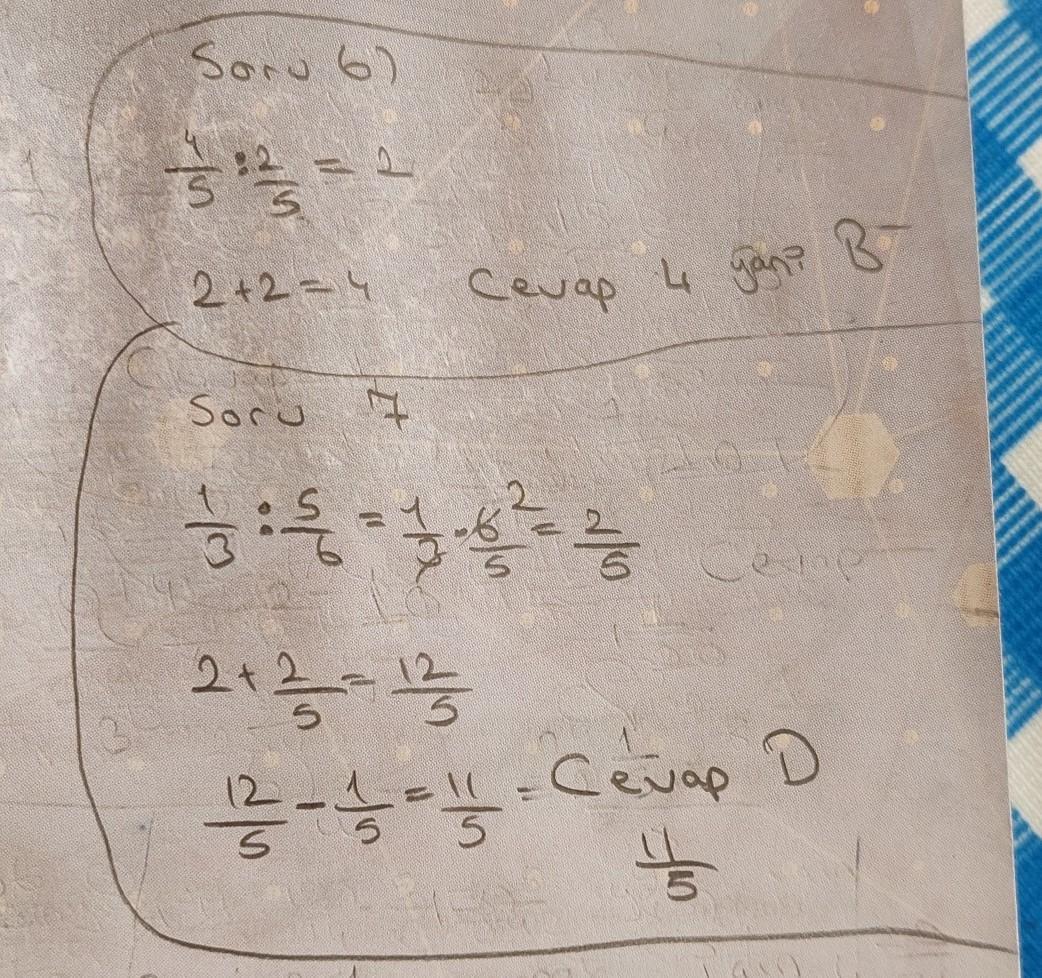 Soru 6)
4/5 : 2/5 = 2
2+2=4 Cevap 4 yani B
Soru 7
1/3 : 5/6 = 1/3 . 6/5 2 = 2/5
2 + 2/5 = 12/5
12/5 - 1/5 = 11/5 = Cevap D
11/5